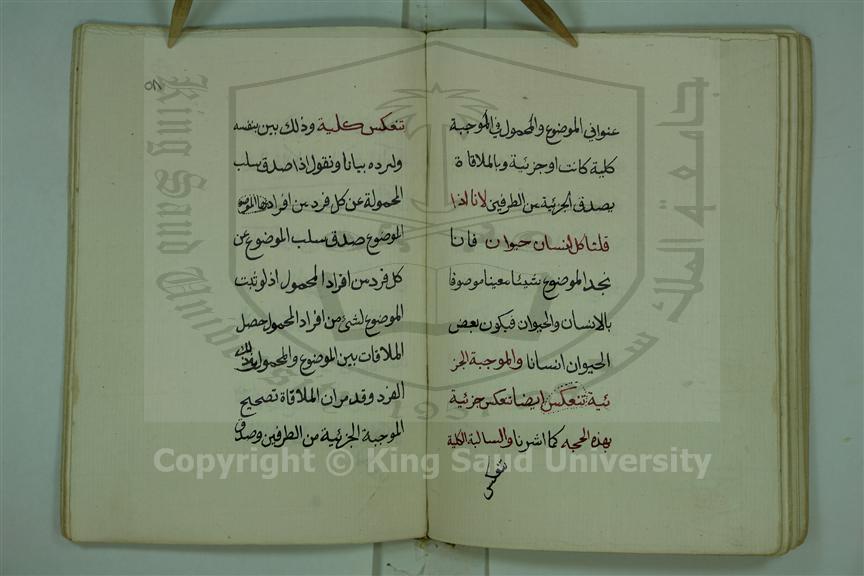 عنواني الموضوع والمحمول في الموجبة
كلية كانت او جزئية وبالملاقاة
يصدق الجزئية من الطرفين لانا اذا
قلنا كل انسان حيوان فانا
نجد الموضوع شيئا معينا موصوفا
بالانسان والحيوان فيكون بعض
الحيوان انسانا والموجبة الجز
ئية تنعكس ايضا تعكس جزئية
بهذه الحجه كما اشرنا والسالبة الكلية
تنعكس
٥٨
تنعكس كلية وذلك بين بنفسه
بيانا ونقول اذا صدق سلب
المحمولة عن كل فرد من افراد
الموضوع صدق سلب الموضوع عن
كل فرد من افراد المحمول اذ لو ثبت
الموضوع لشئ من افراد المحمول حصل
الملاقات بين الموضوع والمحمول
الفرد وقد مر ان الملاقاة تصحيح
الموجبة الجزئية من الطرفين وصدق
King Saud University
جامعة الملك سعود
1957
Copyright © King Saud University